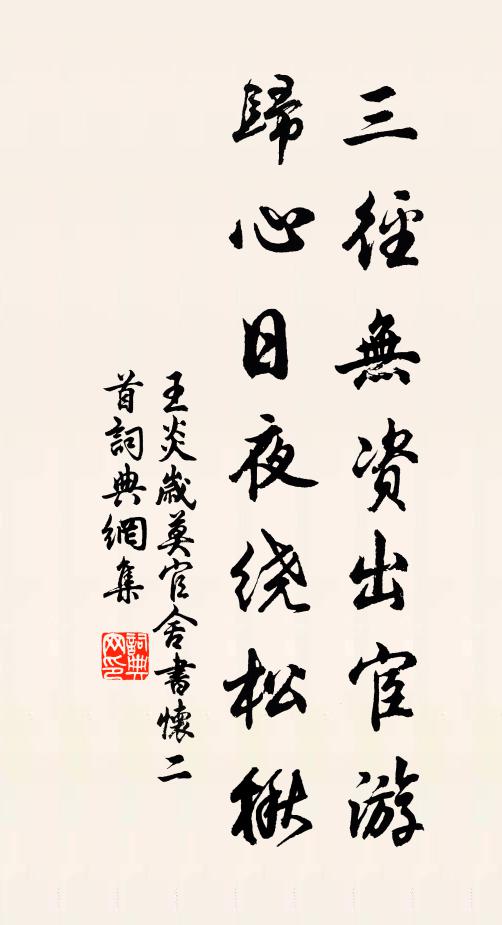 三徑無資出宦游
歸心日夜绕松楸
王炎歲莫官舍書懷二
首詞典網集
詞典網印